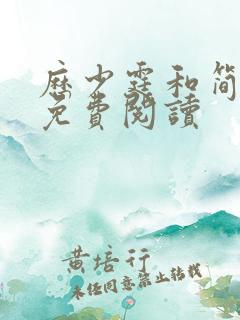 历少霆和简
免費閱讀
黄培行
未经同意禁止转载